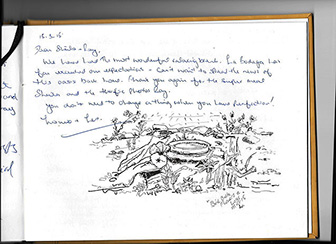 16.3.15
Dear Sheila + Ray,
We have had the most wonderful relaxing break. La Bodega has
far exceeded our expectations - Can't wait to spread the news of
this oasis back home. Thank you again for the superb meal
Sheila and the terrific photos Ray.
You don't need to change a thing when you have perfection!